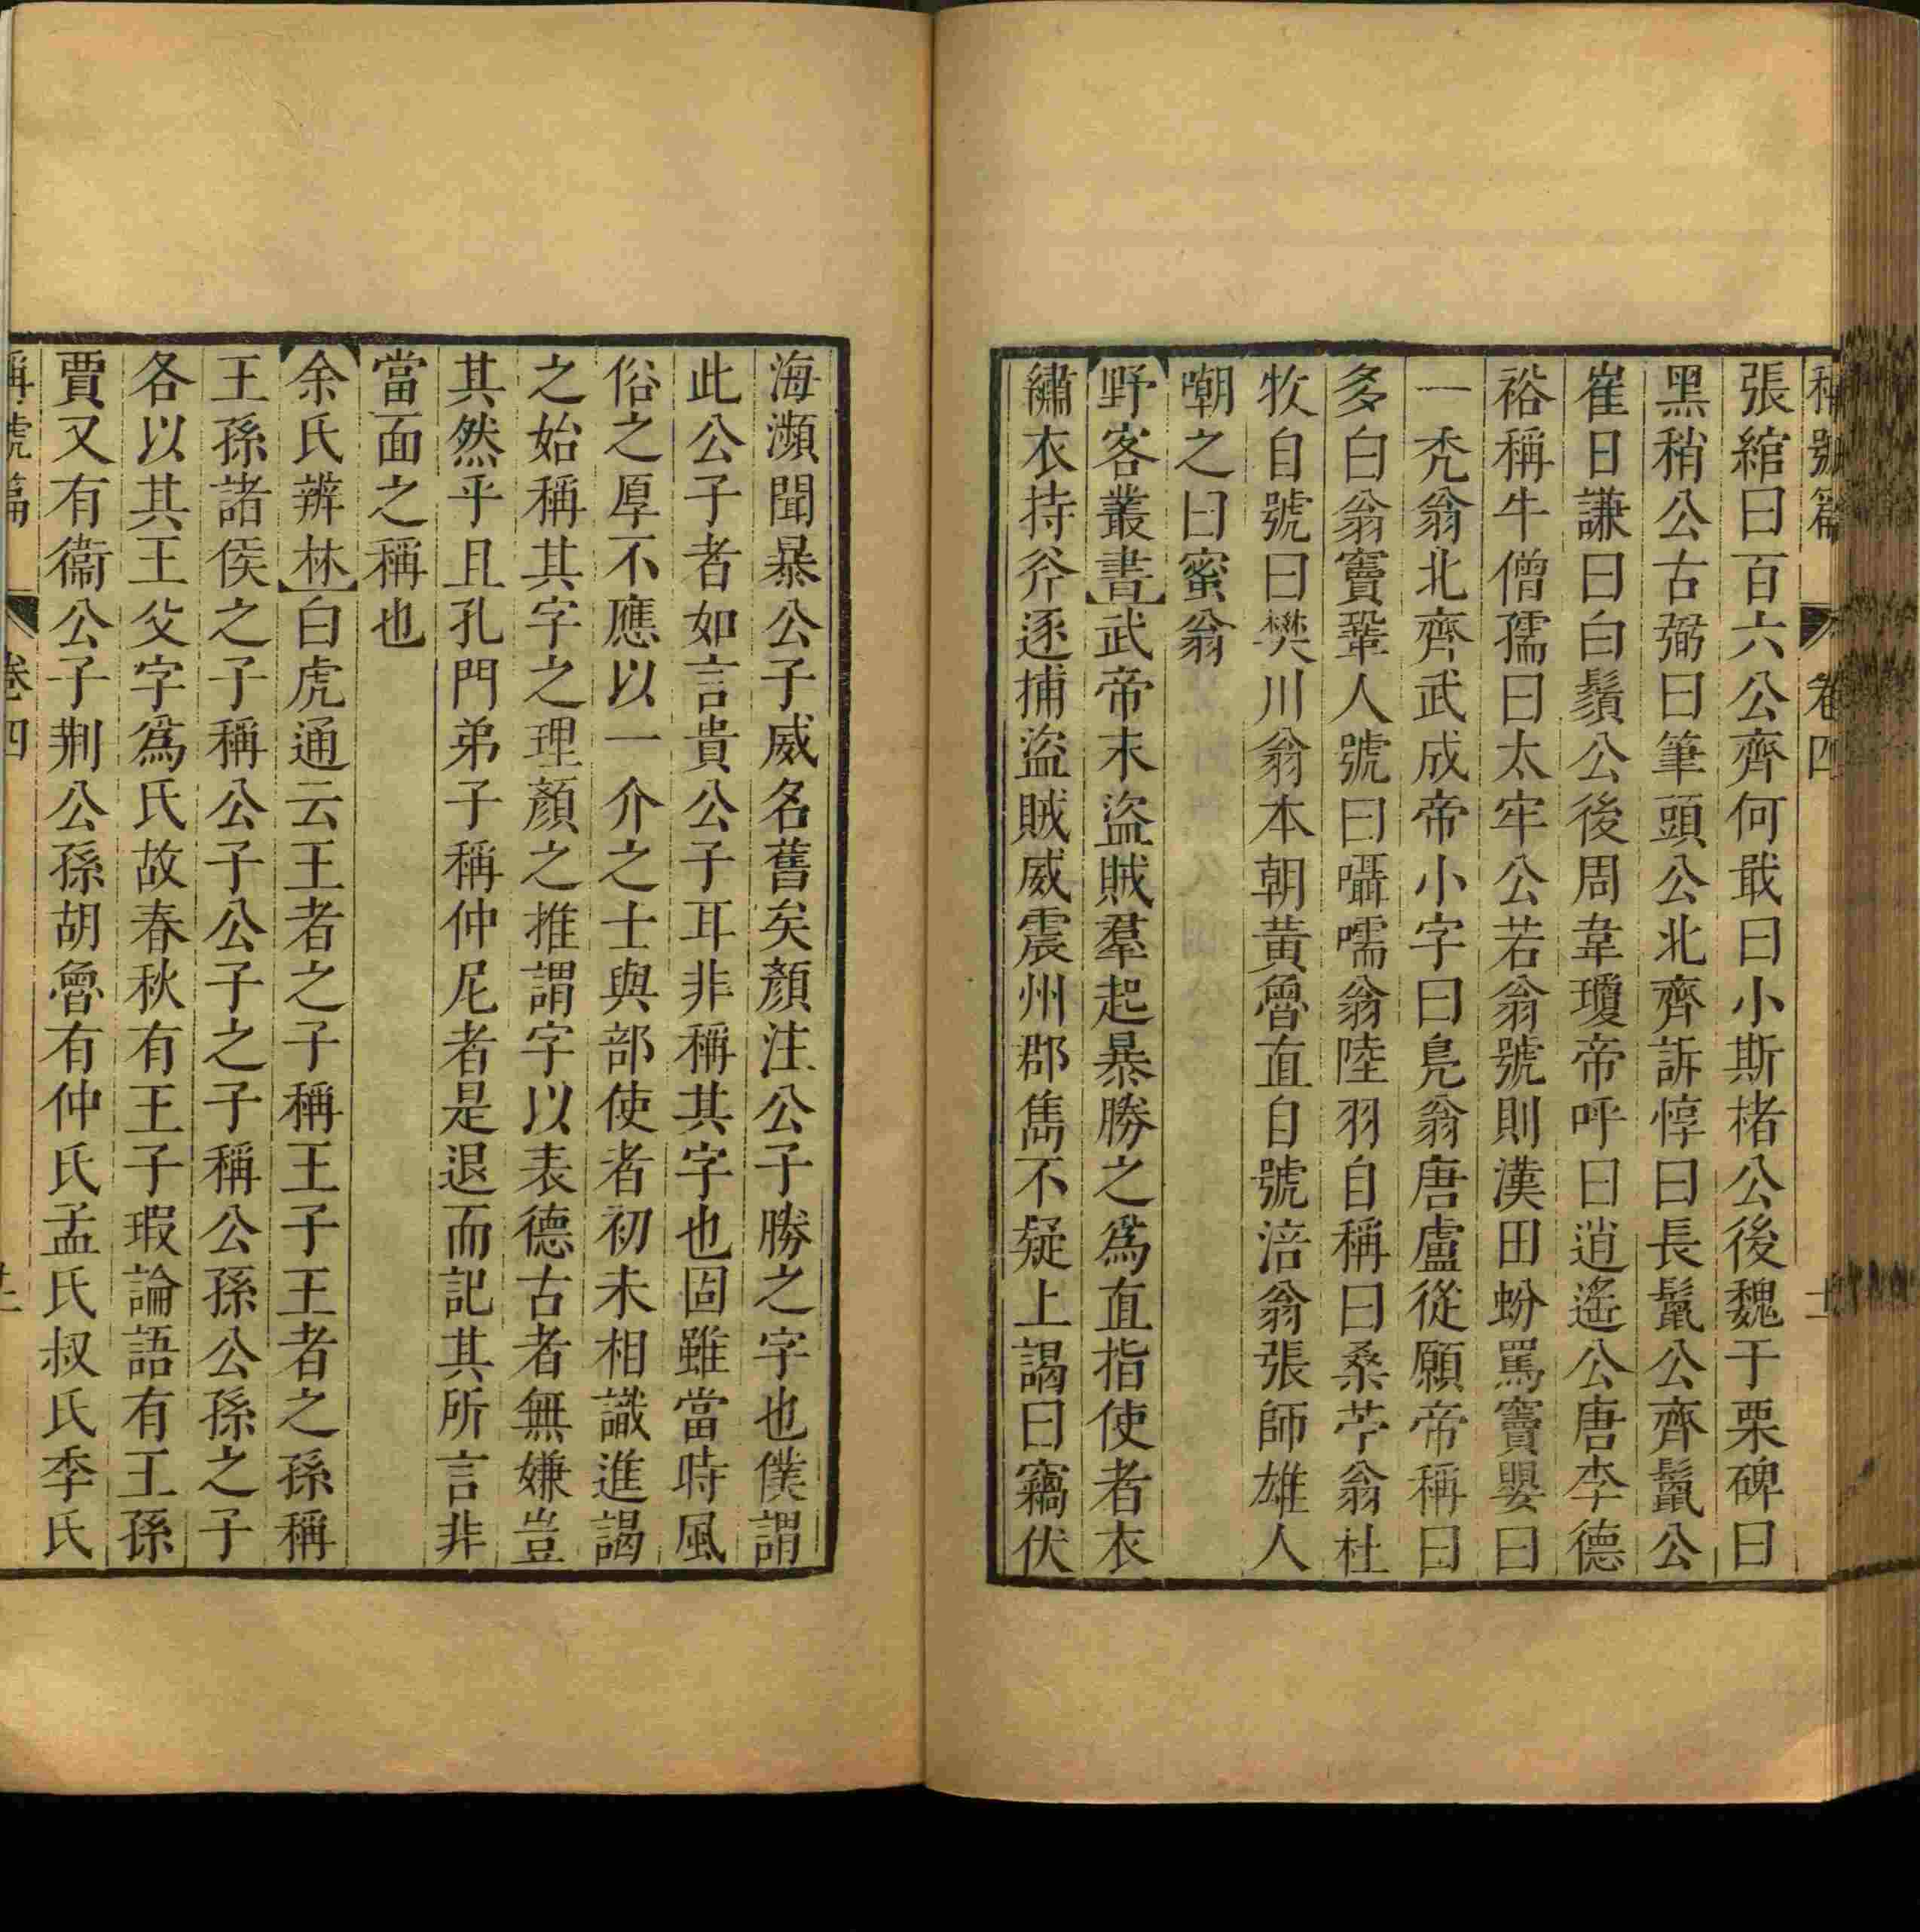 稱號篇 卷四 十二
張綰曰百六公齊何戢曰小斯楮公後魏于栗磾曰
黑矟公古弼曰筆頭公北齊許惇曰長鬣公齊鬣公
崔曰謙曰白鬚公後周韋瓊帝呼曰逍遙公唐李德
裕稱牛僧孺曰太牢公若翁號則漢田蚡罵竇嬰曰
一禿翁北齊武成帝小字曰鳧翁唐盧從願帝稱曰
多白翁竇鞏人號曰囁嚅翁陸羽自稱曰桑苧翁杜
牧自號曰樊川翁本朝黃魯直自號涪翁張師雄人
嘲之曰蜜翁
野客叢書武帝末盜賊羣起暴勝之爲直指使者衣
繡衣持斧逐捕盜賊威震州郡雋不疑上謁曰竊伏
海瀕聞暴公子威名舊矣顏注公子勝之字也僕謂
此公子者如言貴公子耳非稱其字也固雖當時風
俗之厚不應以一介之士與部使者初未相識進謁
之始稱其字之理顏之推謂字以表德古者無嫌豈
其然乎且孔門弟子稱仲尼者是退而記其所言非
當面之稱也
余氏辨林白虎通云王者之子稱王子王者之孫稱
王孫諸侯之子稱公子公子之子稱公孫公孫之子
各以其王父字爲氏故春秋有王子瑕論語有王孫
賈又有衞公子荆公孫胡魯有仲氏孟氏叔氏季氏
稱號篇 卷四